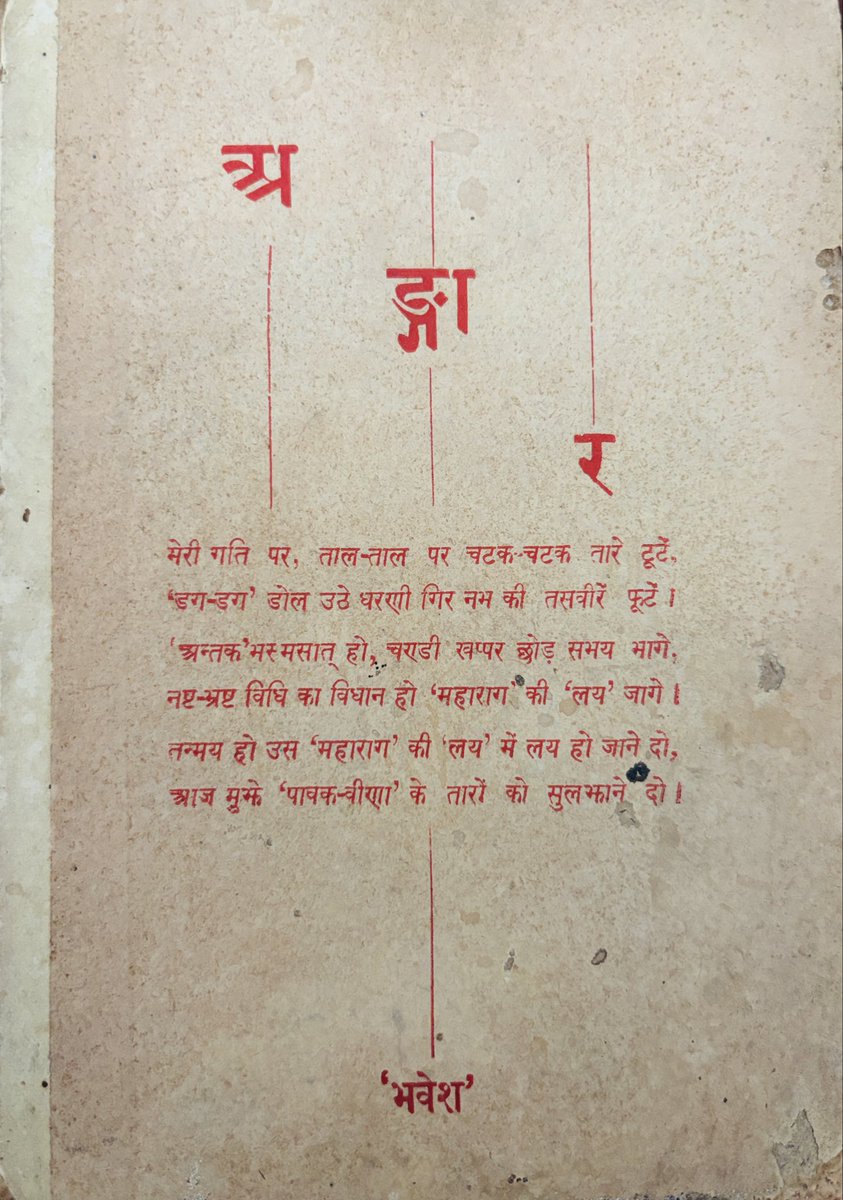 अ
ङ्गा
र
मेरी गति पर, ताल-ताल पर चटक-चटक तारे टूटें,
‘डग-डग’ डोल उठे धरणी गिर नभ की तसवीरें फूटें।
‘अन्तक’ भस्मसात् हो, चण्डी खप्पर छोड़ सभय भागे,
नष्ट-भ्रष्ट विधि का विधान हो ‘महाराग’ की ‘लय’ जागे।
तन्मय हो उस ‘महाराग’ की ‘लय’ में लय हो जाने दो,
आज मुझे ‘पावक-वीणा’ के तारों को सुलझाने दो।
‘भवेश’